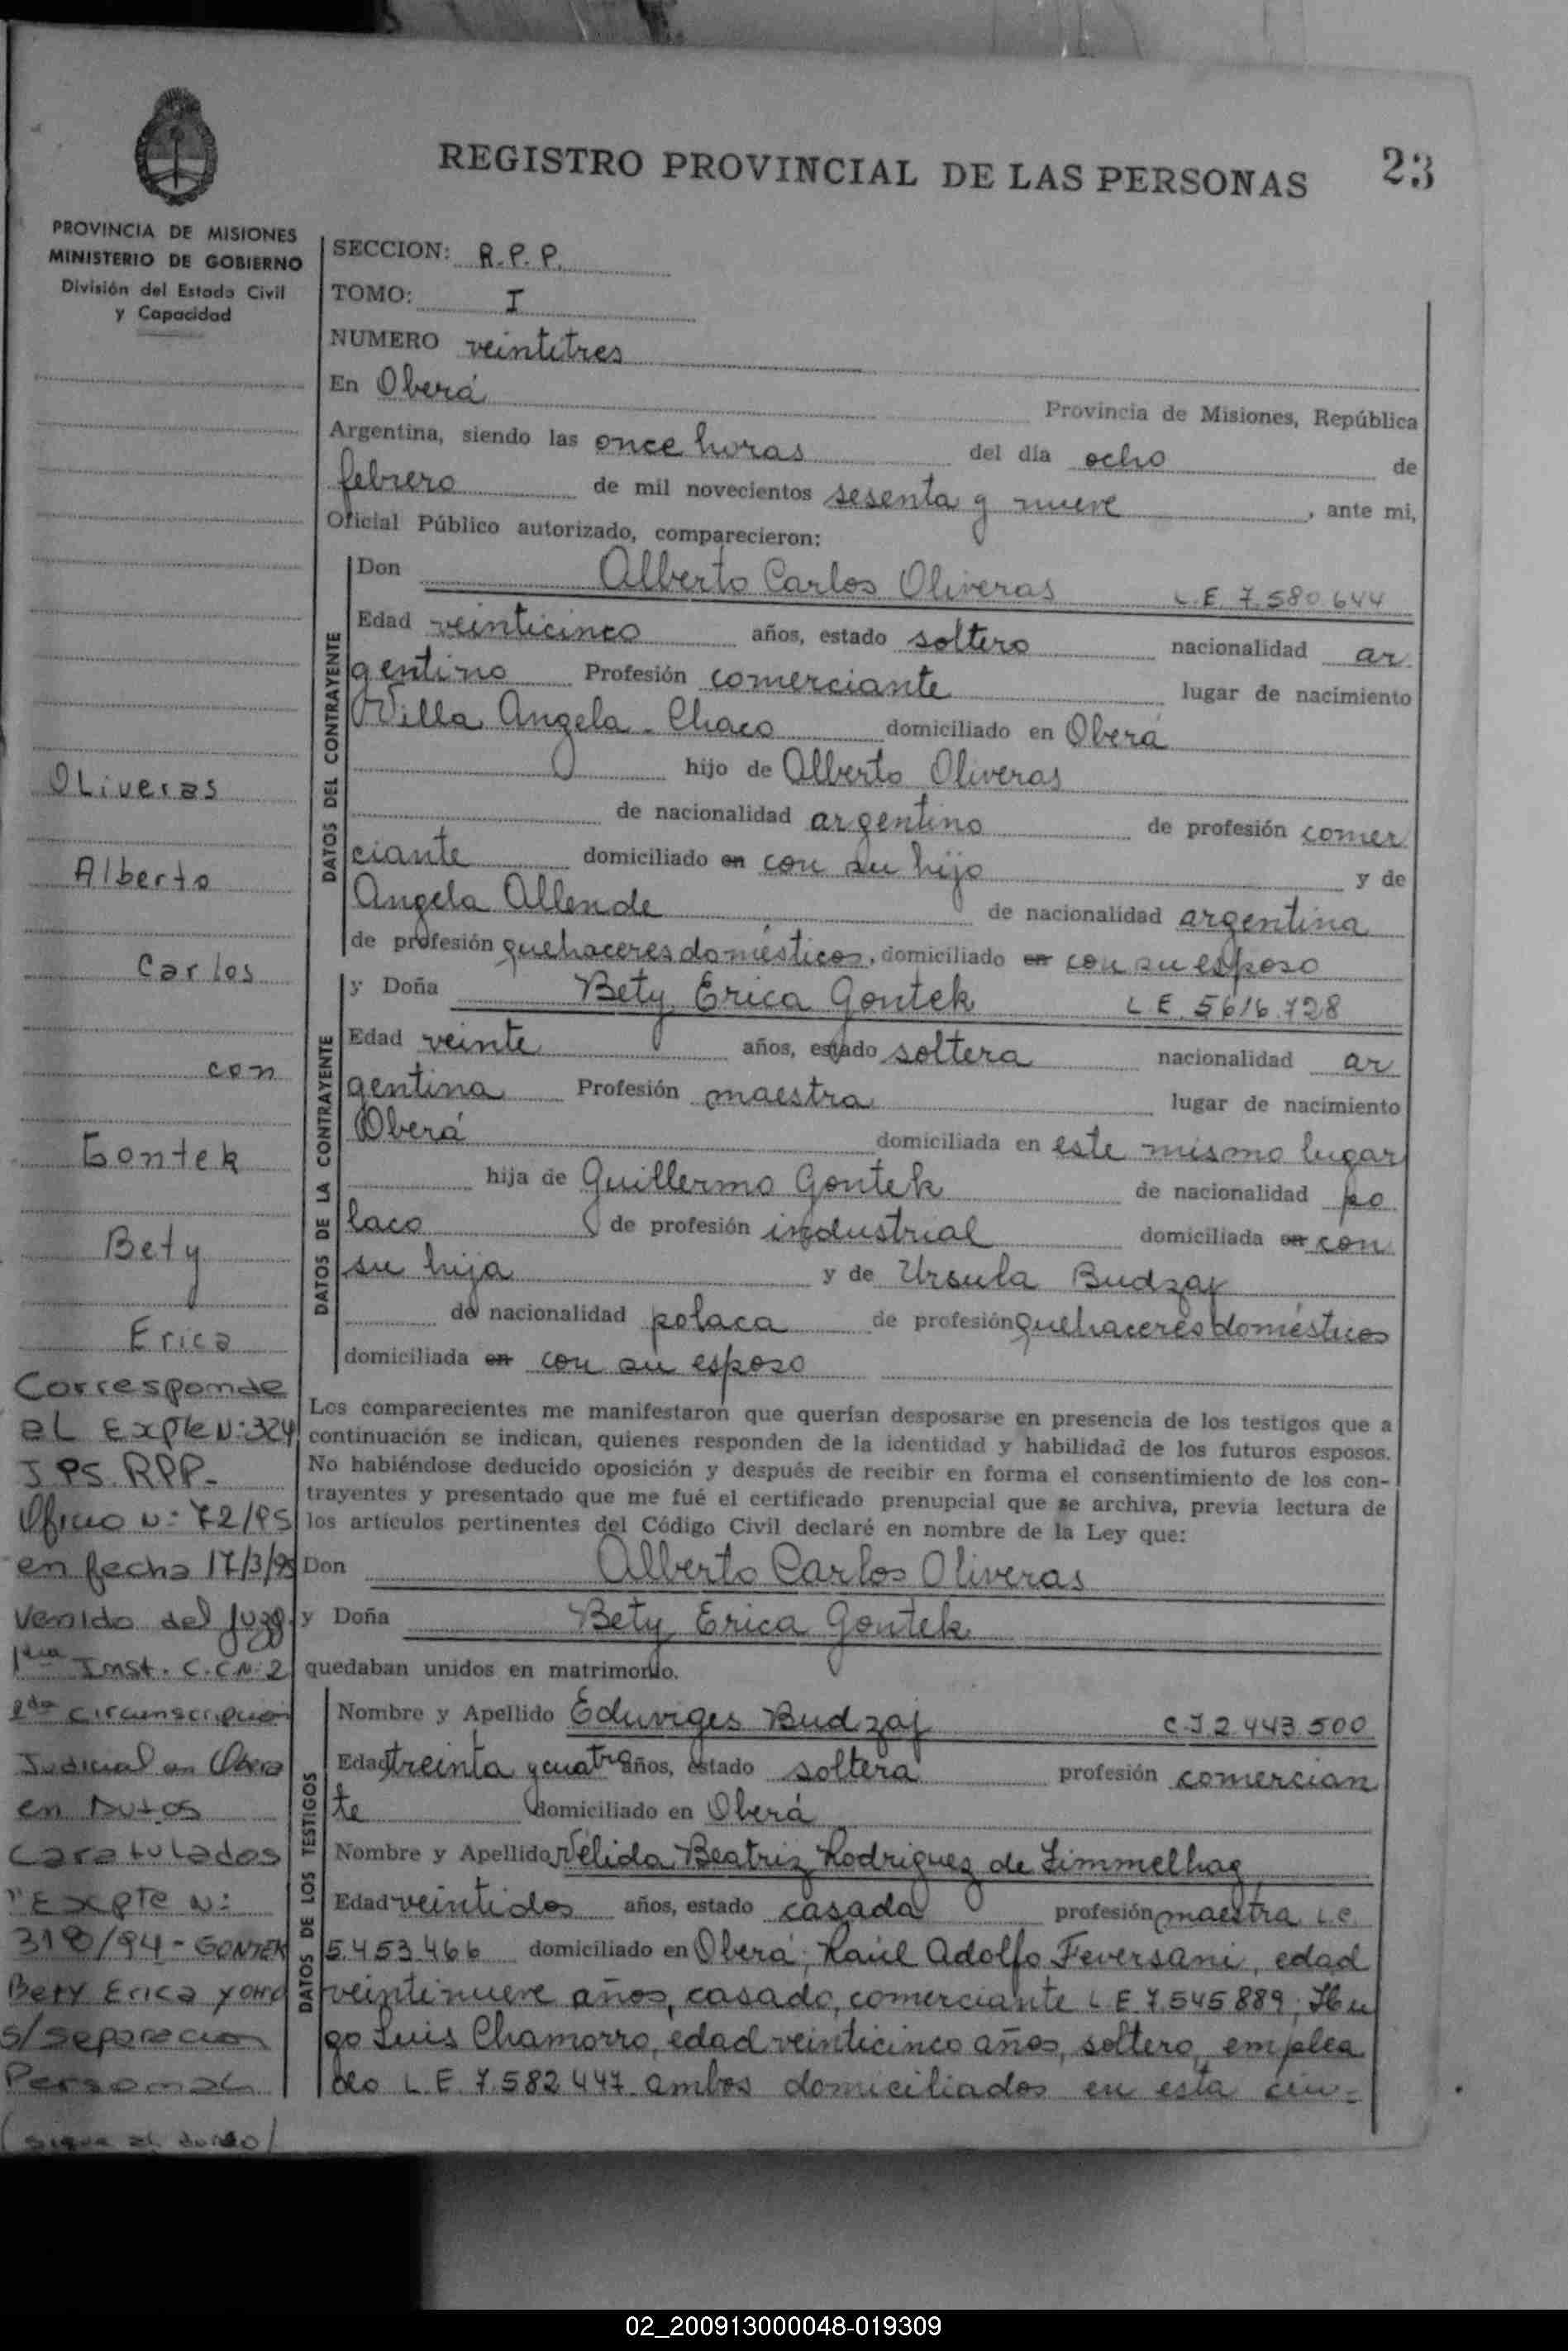 REGISTRO PROVINCIAL DE LAS PERSONAS 23
PROVINCIA DE MISIONES
MINISTERIO DE GOBIERNO
División del Estado Civil
y Capacidad
SECCION: R.P.P.
TOMO: I
NUMERO veintitres
En Oberá Provincia de Misiones, República
Argentina, siendo las once horas del día ocho de
febrero de mil novecientos sesenta y nueve, ante mi,
Oficial Público autorizado, comparecieron:
DATOS DEL CONTRAYENTE
Don Alberto Carlos Oliveras L.E. 7.580.644
Edad veinticinco años, estado soltero nacionalidad ar
gentino Profesión comerciante lugar de nacimiento
Villa Angela - Chaco domiciliado en Oberá
hijo de Alberto Oliveras
de nacionalidad argentino de profesión comer
ciante domiciliado en con su hijo y de
Angela Allende de nacionalidad argentina
de profesión quehaceres domésticos, domiciliado en con su esposo
DATOS DE LA CONTRAYENTE
y Doña Bety Erica Gontek L E. 5616.728
Edad veinte años, estado soltera nacionalidad ar
gentina Profesión maestra lugar de nacimiento
Oberá domiciliada en este mismo lugar
hija de Guillermo Gontek de nacionalidad po
laco de profesión industrial domiciliada en con
su hija y de Ursula Budzaj
de nacionalidad polaca de profesión quehaceres domésticos
domiciliada en con su esposo
Los comparecientes me manifestaron que querían desposarse en presencia de los testigos que a
continuación se indican, quienes responden de la identidad y habilidad de los futuros esposos.
No habiéndose deducido oposición y después de recibir en forma el consentimiento de los con-
trayentes y presentado que me fué el certificado prenupcial que se archiva, previa lectura de
los artículos pertinentes del Código Civil declaré en nombre de la Ley que:
Don Alberto Carlos Oliveras
y Doña Bety Erica Gontek
quedaban unidos en matrimonio.
DATOS DE LOS TESTIGOS
Nombre y Apellido Eduviges Budzaj C.I 2.443.500
Edad treinta y cuatro años, estado soltera profesión comercian
te domiciliado en Oberá
Nombre y Apellido Nélida Beatriz Rodriguez de Zimmelhag
Edad veintidos años, estado casada profesión maestra L.C.
5.453.466 domiciliado en Oberá; Raúl Adolfo Feversani, edad
veintinueve años, casado, comerciante L E. 7.545.889; Hu
go Luis Chamorro, edad veinticinco años, soltero, emplea
do L.E. 7.582.447 ambos domiciliados en esta ciu-
Oliveras
Alberto
Carlos
con
Gontek
Bety
Erica
Corresponde
al Expte N: 324
J PS. RPP-
Oficio N: 72/95
en fecha 17/3/95
venido del Juzg.
1era Inst. C.C N: 2
2da circunscripcion
Judicial en Obera
en Autos
Caratulados
"Expte N:
/94 - GONTEK
Bety Erica y otro
s/ Separacion
Personal
(sigue al dorso)
02_200913000048-019309